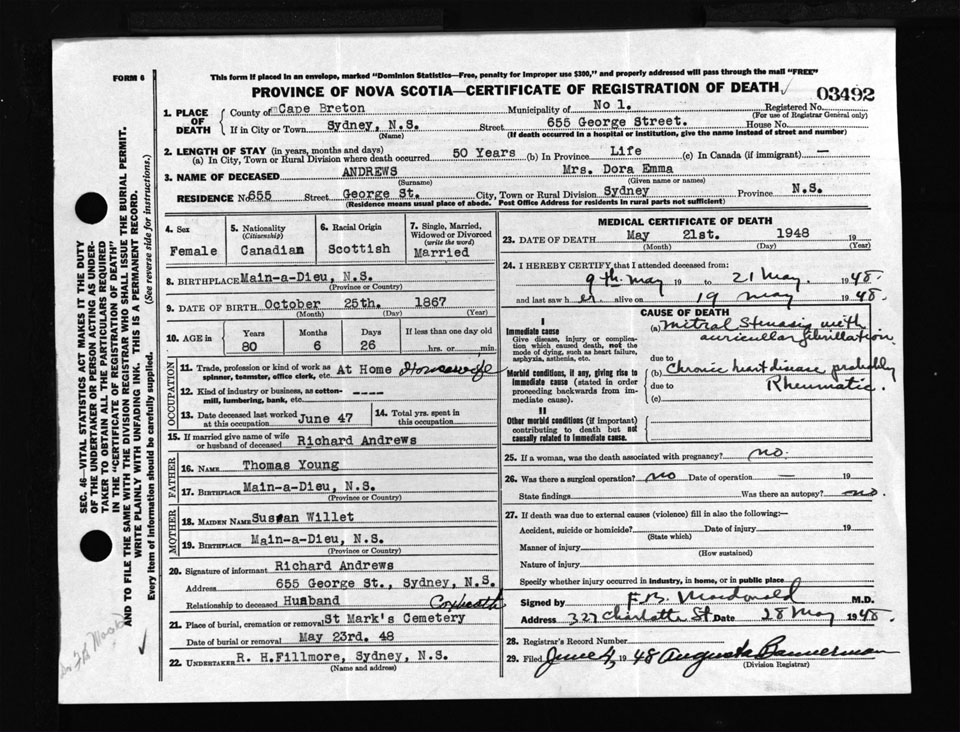 FORM 6
This form if placed in an envelope, marked "Dominion Statistics—Free, penalty for improper use $300," and properly addressed will pass through the mail "FREE"
PROVINCE OF NOVA SCOTIA—CERTIFICATE OF REGISTRATION OF DEATH
03492
1. PLACE OF DEATH
County of Cape Breton Municipality of No 1. Registered No.
(For use of Registrar General only)
If in City or Town Sydney, N.S. Street 655 George Street. House No.
(Name) (If death occurred in a hospital or institution, give the name instead of street and number)
2. LENGTH OF STAY (in years, months and days)
(a) In City, Town or Rural Division where death occurred 50 Years (b) In Province Life (c) In Canada (if immigrant) —
3. NAME OF DECEASED ANDREWS Mrs. Dora Emma
(Surname) (Given name or names)
RESIDENCE No 655 Street George St. City, Town or Rural Division Sydney Province N.S.
(Residence means usual place of abode. Post Office Address for residents in rural parts not sufficient)
4. Sex
Female
5. Nationality
(Citizenship)
Canadian
6. Racial Origin
Scottish
7. Single, Married, Widowed or Divorced
(write the word)
Married
8. BIRTHPLACE Main-a-Dieu, N.S.
(Province or Country)
9. DATE OF BIRTH October 25th. 1867
(Month) (Day) (Year)
10. AGE in
Years Months Days If less than one day old
80 6 26 hrs. or min.
OCCUPATION
11. Trade, profession or kind of work as spinner, teamster, office clerk, etc. At Home Housewife
12. Kind of industry or business, as cotton-mill, lumbering, bank, etc. ----
13. Date deceased last worked at this occupation June 47
14. Total yrs. spent in this occupation
15. If married give name of wife or husband of deceased Richard Andrews
FATHER
16. NAME Thomas Young
17. BIRTHPLACE Main-a-Dieu, N.S.
(Province or Country)
MOTHER
18. MAIDEN NAME Susan Willet
19. BIRTHPLACE Main-a-Dieu, N.S.
(Province or Country)
20. Signature of informant Richard Andrews
Address 655 George St., Sydney, N.S.
Relationship to deceased Husband
Coxheath
21. Place of burial, cremation or removal St Mark's Cemetery
Date of burial or removal May 23rd. 48
22. UNDERTAKER R. H. Fillmore, Sydney, N.S.
(Name and address)
MEDICAL CERTIFICATE OF DEATH
23. DATE OF DEATH May 21st. 1948 19
(Month) (Day) (Year)
24. I HEREBY CERTIFY that I attended deceased from:
9th May 19 to 21 May, 1948.
and last saw h er alive on 19 May 1948.
CAUSE OF DEATH
I
Immediate cause
Give disease, injury or complication which caused death, not the mode of dying, such as heart failure, asphyxia, asthenia, etc.
(a) Mitral Stenosis with
auricular fibrillation
due to
Morbid conditions, if any, giving rise to immediate cause (stated in order proceeding backwards from immediate cause).
(b) Chronic heart disease probably
due to Rheumatic.
(c)
II
Other morbid conditions (if important) contributing to death but not causally related to immediate cause.
25. If a woman, was the death associated with pregnancy? no.
26. Was there a surgical operation? no Date of operation — 19
State findings Was there an autopsy? no.
27. If death was due to external causes (violence) fill in also the following:—
Accident, suicide or homicide? Date of injury 19
(State which)
Manner of injury
(How sustained)
Nature of injury
Specify whether injury occurred in industry, in home, or in public place
Signed by F.B. Macdonald M.D.
Address 327 Charlotte St. Date 28 May 1948.
28. Registrar's Record Number
29. Filed June 4, 1948 Augusta Bannerman
(Division Registrar)
SEC. 46—VITAL STATISTICS ACT MAKES IT THE DUTY
OF THE UNDERTAKER OR PERSON ACTING AS UNDER-
TAKER TO OBTAIN ALL THE PARTICULARS REQUIRED
IN THE "CERTIFICATE OF REGISTRATION OF DEATH"
AND TO FILE THE SAME WITH THE DIVISION REGISTRAR WHO SHALL ISSUE THE BURIAL PERMIT.
WRITE PLAINLY WITH UNFADING INK. THIS IS A PERMANENT RECORD.
Every item of information should be carefully supplied. (See reverse side for instructions.)